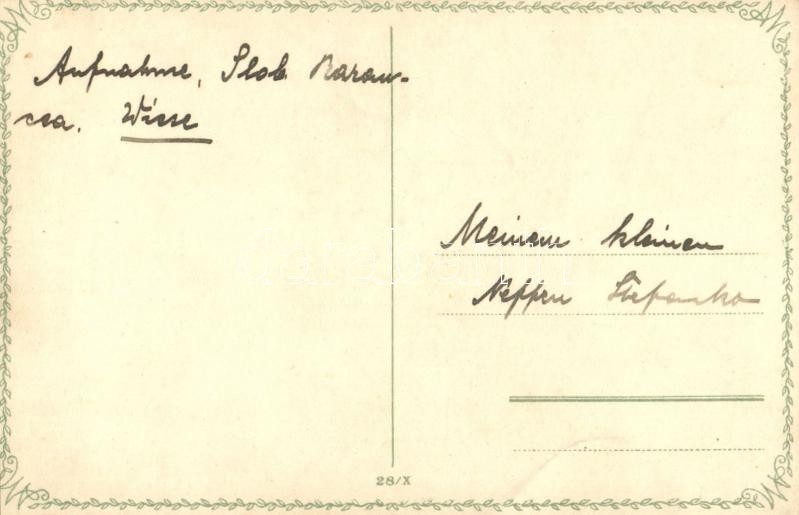 Aufnahme, Slob. Barau-
cea. Wiese
Meinem kleinen
Neffen Stefanko
28/X